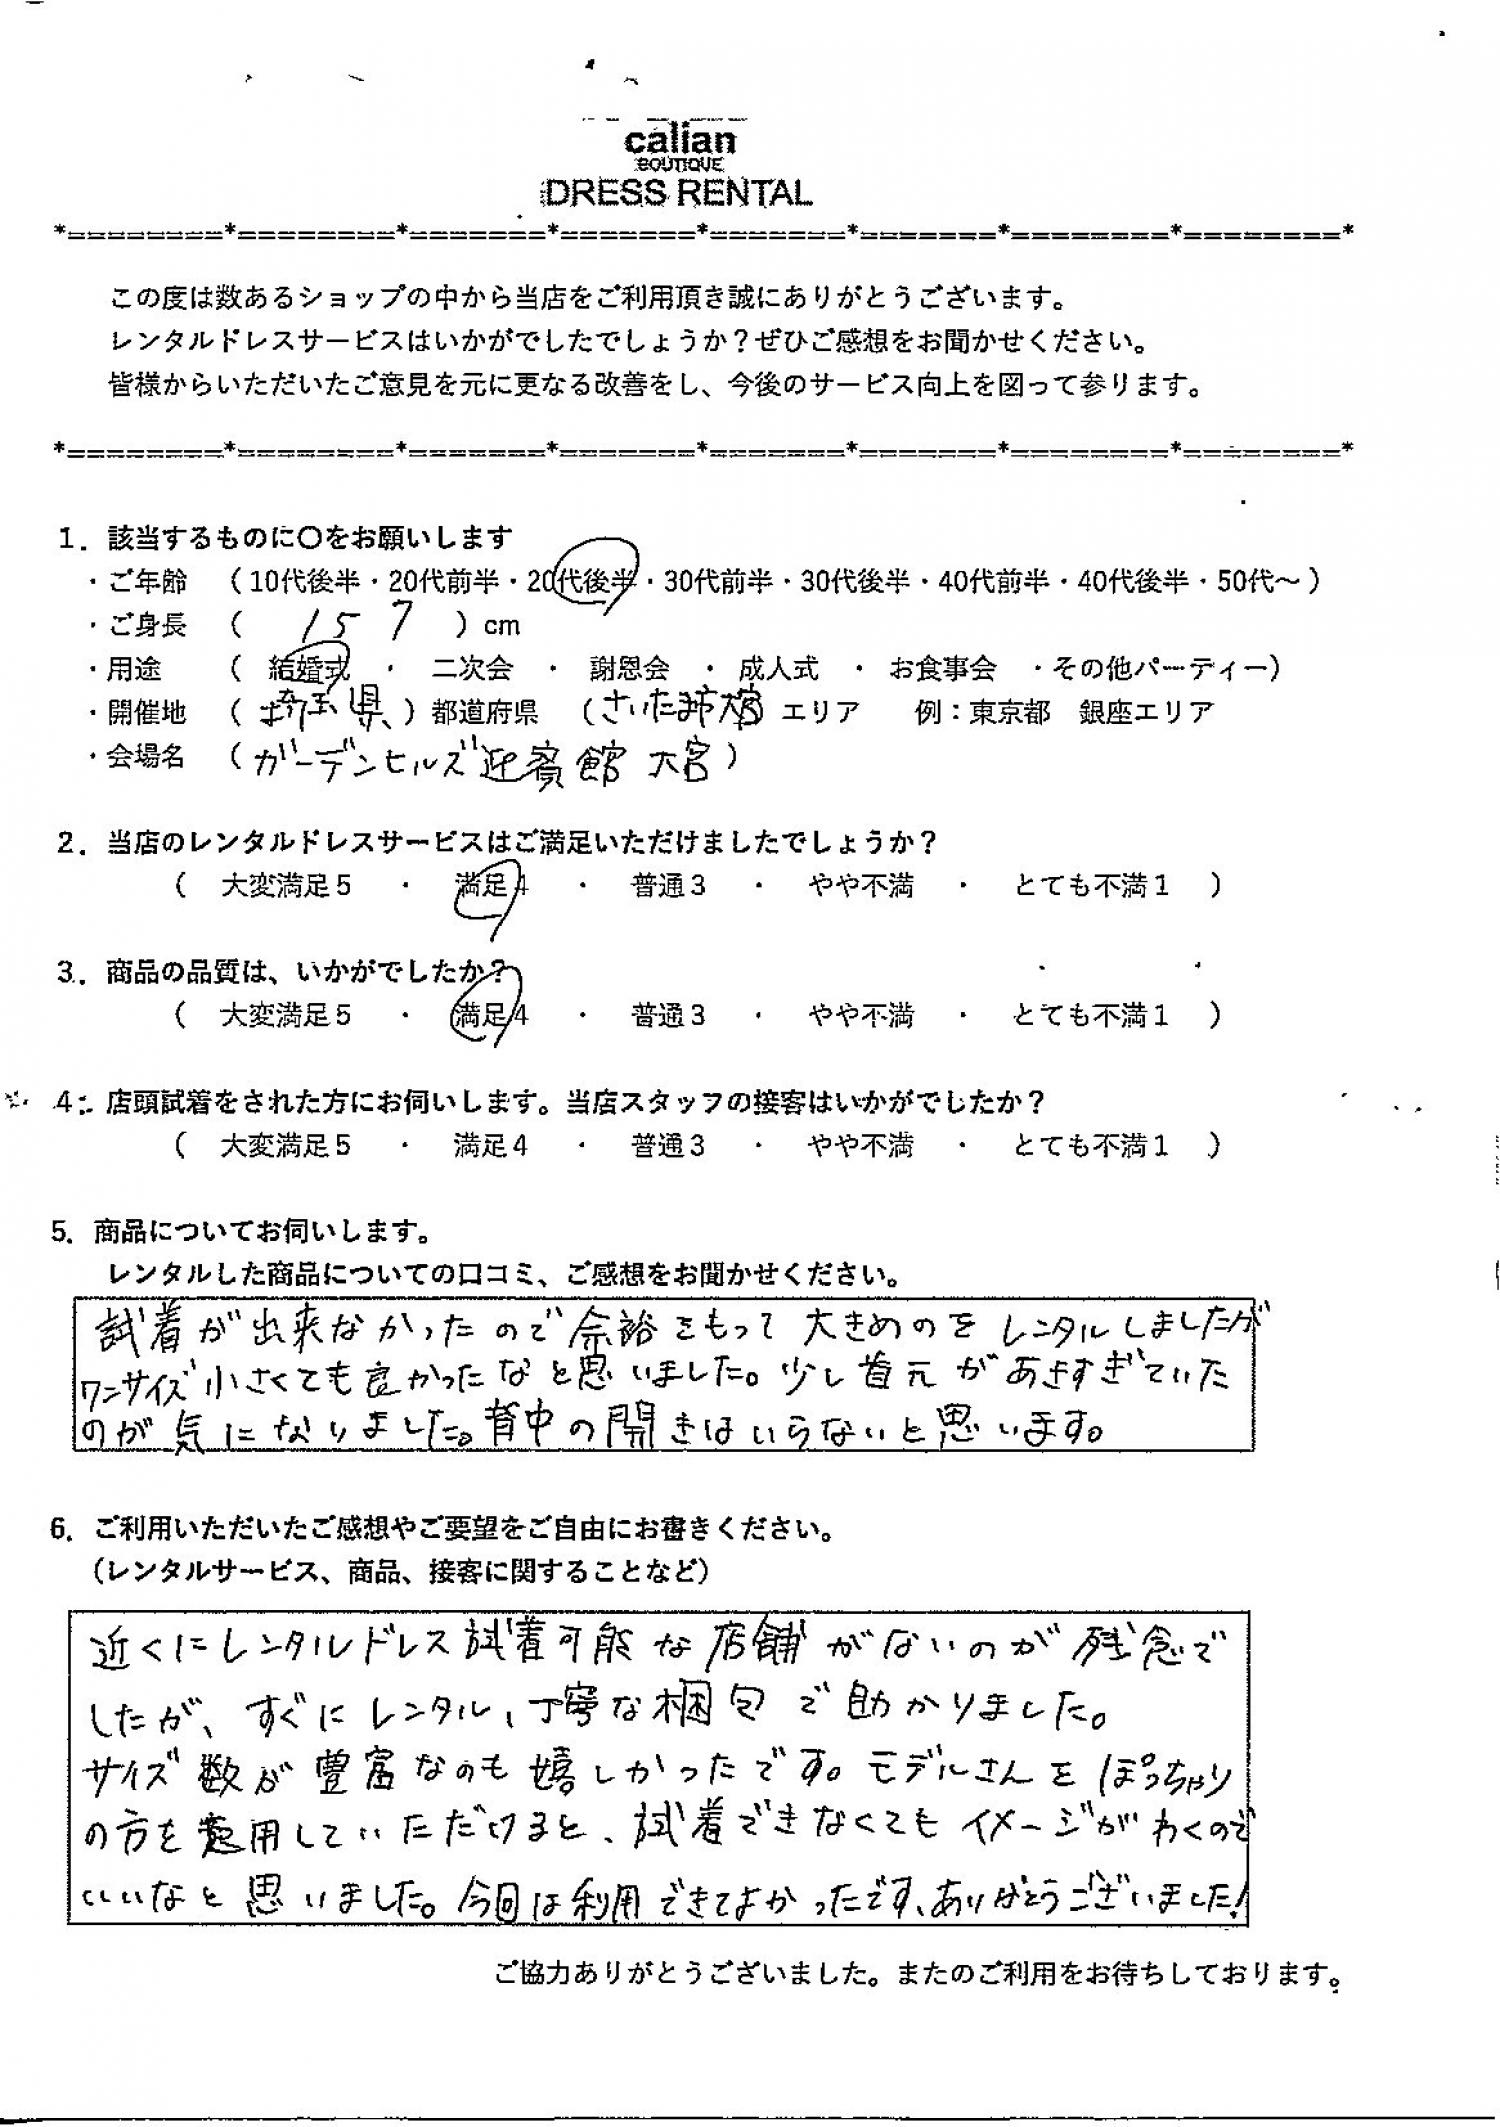 calian
BOUTIQUE
DRESS RENTAL
*========*========*=======*=======*=======*=======*========*========*
この度は数あるショップの中から当店をご利用頂き誠にありがとうございます。
レンタルドレスサービスはいかがでしたでしょうか？ぜひご感想をお聞かせください。
皆様からいただいたご意見を元に更なる改善をし、今後のサービス向上を図って参ります。
*========*========*=======*=======*=======*=======*========*========*
1．該当するものに〇をお願いします
・ご年齢　（10代後半・20代前半・20代後半・30代前半・30代後半・40代前半・40代後半・50代～）
・ご身長　（　157　）cm
・用途　（　結婚式　・　二次会　・　謝恩会　・成人式　・　お食事会　・その他パーティー）
・開催地　（埼玉県）都道府県　（さいたま市大宮）エリア　例：東京都　銀座エリア
・会場名　（ガーデンヒルズ迎賓館 大宮）
2．当店のレンタルドレスサービスはご満足いただけましたでしょうか？
（　大変満足5　・　満足4　・　普通3　・　やや不満　・　とても不満1　）
3．商品の品質は、いかがでしたか？
（　大変満足5　・　満足4　・　普通3　・　やや不満　・　とても不満1　）
4．店頭試着をされた方にお伺いします。当店スタッフの接客はいかがでしたか？
（　大変満足5　・　満足4　・　普通3　・　やや不満　・　とても不満1　）
5．商品についてお伺いします。
レンタルした商品についての口コミ、ご感想をお聞かせください。
試着が出来なかったので余裕をもって大きめのをレンタルしましたが
ワンサイズ小さくても良かったなと思いました。少し首元があきすぎていた
のが気になりました。背中の開きはいらないと思います。
6．ご利用いただいたご感想やご要望をご自由にお書きください。
（レンタルサービス、商品、接客に関することなど）
近くにレンタルドレス試着可能な店舗がないのが残念で
したが、すぐにレンタル、丁寧な梱包で助かりました。
サイズ数が豊富なのも嬉しかったです。モデルさんをぽっちゃり
の方を起用していただけると、試着できなくてもイメージがわくので
いいなと思いました。今回は利用できてよかったです、ありがとうございました!
ご協力ありがとうございました。またのご利用をお待ちしております。